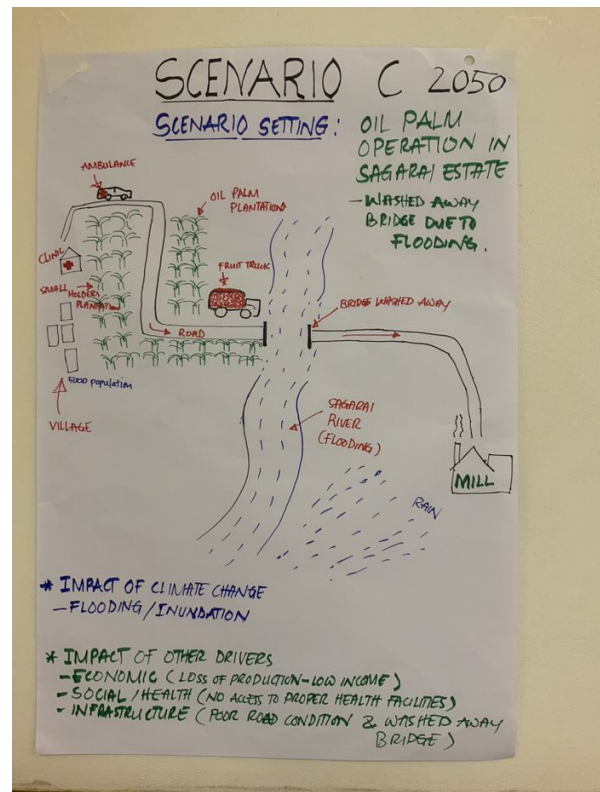 SCENARIO C 2050
SCENARIO SETTING:
OIL PALM
OPERATION IN
SAGARAI ESTATE
- WASHED AWAY
BRIDGE DUE TO
FLOODING.
AMBULANCE
OIL PALM
PLANTATION
CLINIC
SMALL
HOLDERS
PLANTATION
FRUIT TRUCK
BRIDGE WASHED AWAY
ROAD
5000 population
VILLAGE
SAGARAI
RIVER
(FLOODING)
MILL
RAIN
* IMPACT OF CLIMATE CHANGE
- FLOODING/INUNDATION
* IMPACT OF OTHER DRIVERS
- ECONOMIC (LOSS OF PRODUCTION-LOW INCOME)
- SOCIAL/HEALTH (NO ACCESS TO PROPER HEALTH FACILITIES)
- INFRASTRUCTURE (POOR ROAD CONDITION & WASHED AWAY
BRIDGE)